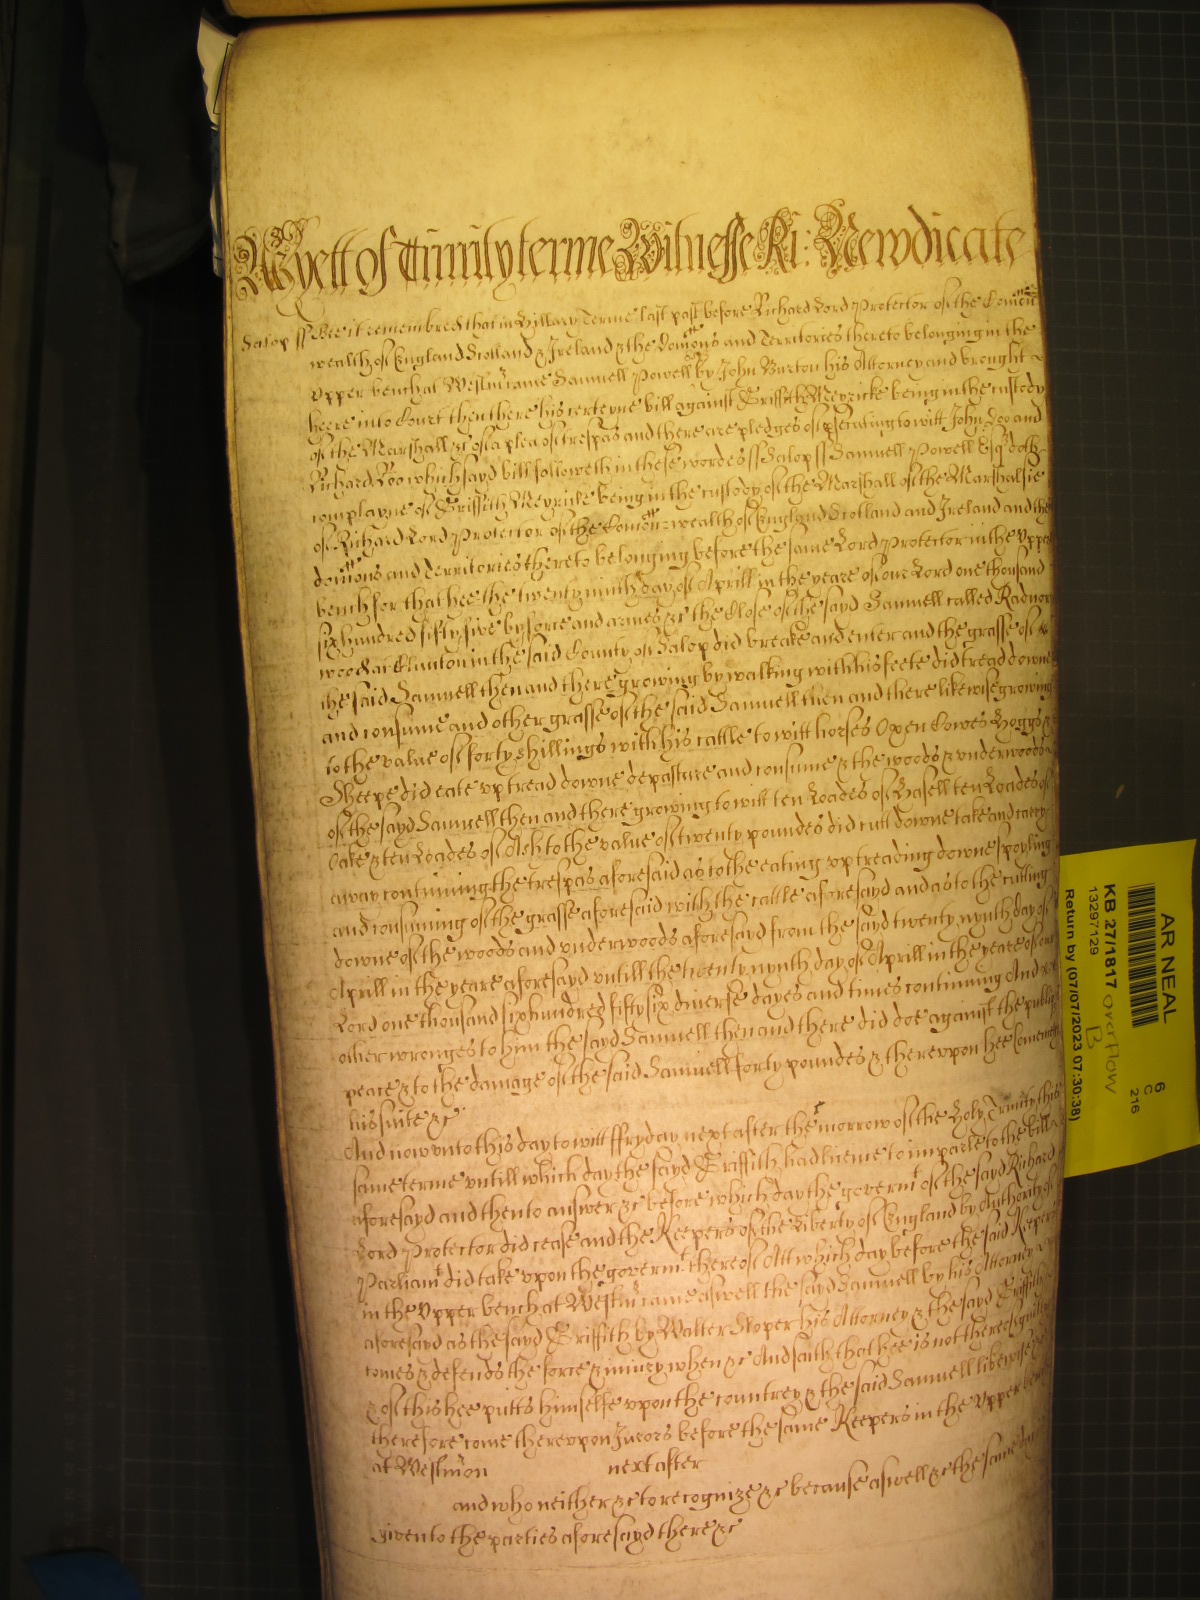 As yett of Trinity terme Witnesse Ri: Newdicate
Salop ss Bee it remembred that in Hillary Terme last past before Richard Lord Protector of the Comon
wealth of England Scotland & Ireland & the domions and Territories thereto belonging in the
Upper bench at Westm came Samuell Powell by John Burton his Attorney and brought
heere into Court then there his certeyne bill against Griffith Meyricke being in the custody
of the Marshall &c of a plea of trespas and there are pledges of psecuting to witt John Doo and
Richard Roo which sayd bill followeth in these wordes ss Salop ss Samuell Powell Esq doth
complayne of Griffith Meyricke being in the custody of the Marshall of the Marshalsie
of Richard Lord Protector of the Comon-wealth of England Scotland and Ireland and the
domions and Territories thereto belonging before the same Lord Protector in the Upper
bench for that hee the twenty ninth day of Aprill in the yeare of our Lord one thousand
six hundred fifty five by force and armes &c the Close of the sayd Samuell called Radnor
wood at Clunton in the said County of Salop did breake and enter and the grasse of
the said Samuell then and there growing by walking with his feete did tread downe
and consume and other grasse of the said Samuell then and there likewise growing
to the value of forty shillings with his cattle to witt horses Oxen Cowes Hoggs &
Sheepe did eate up tread downe depasture and consume & the woods & underwoods
of the sayd Samuell then and there growing to witt ten Loades of Hasell ten Loades of
Oake & ten Loades of Ash to the value of twenty poundes did cutt downe take and carry
away continuing the trespas aforesaid as to the eating up treading downe spoyling
and consuming of the grasse aforesaid with the cattle aforesayd and as to the cutting
downe of the woods and underwoods aforesayd from the sayd twenty nynth day of
Aprill in the yeare aforesayd untill the twenty nynth day of Aprill in the yeare of our
Lord one thousand six hundred fifty six diverse dayes and times continuing And
other wronges to him the sayd Samuell then and there did doe against the publique
peace & to the damage of the said Samuell forty poundes & thereupon hee
his suite &c
And now unto this day to witt ffryday next after the morrow of the Holy Trinity this
same terme untill which day the sayd Griffith had licence to imparle to the bill
aforesayd and then to answer &c before which day the governmt of the sayd Richard
Lord Protector did cease and the Keepers of the Liberty of England by Authority of
Parliamt did take upon the governmt thereof Att which day before the said Keepers
in the Upper bench at Westm came aswell the sayd Samuell by his Attorney
aforesayd as the sayd Griffith by Walter Sloper his Attorney & the sayd Griffith
comes & defends the force & iniury when &c And saith that hee is not thereof guilty
& of this hee putts himselfe upon the countrey & the said Samuell likewise
therefore come thereupon Jurors before the same Keepers in the Upper bench
at Westmon next after
and who neither &c to recognize &c because aswell &c the same day
given to the parties aforesayd there &c
AR NEAL
KB 27/1817 overflow
B
13297129
Return by (07/07/2023 07:30:38)
6
C
216